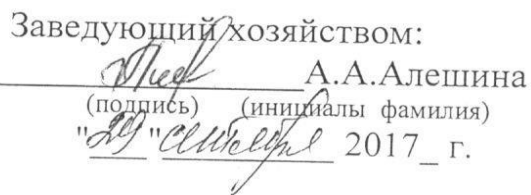 Заведующий хозяйством:
А.А.Алешина
(подпись) (инициалы фамилия)
"29" сентября 2017_ г.